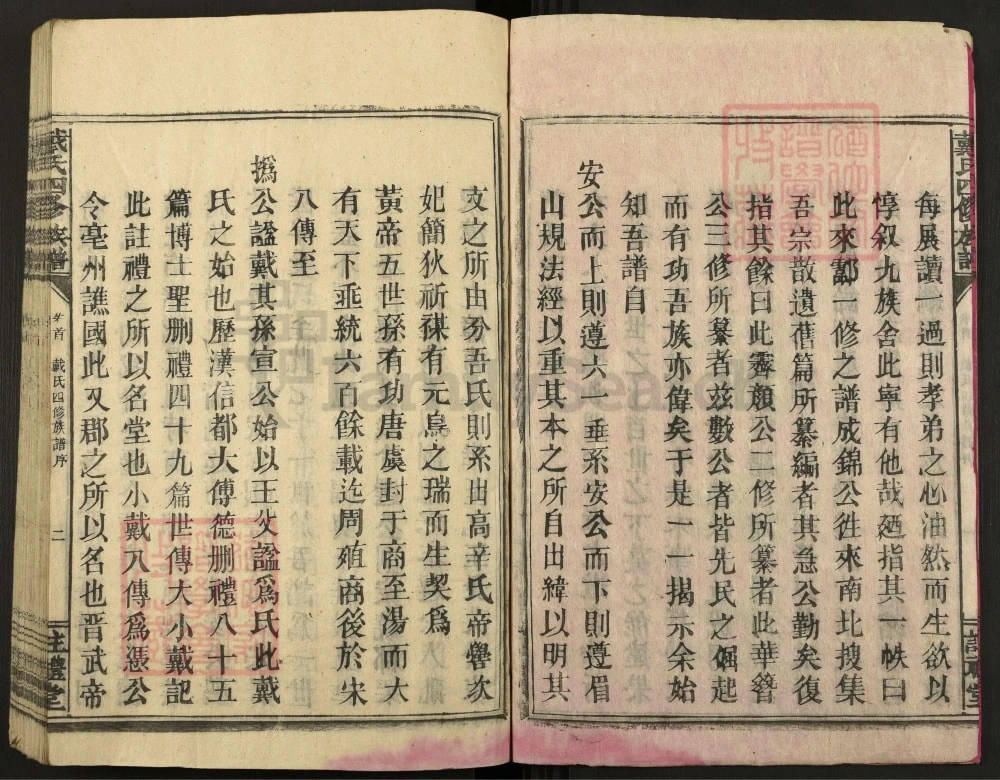 戴氏四修族譜
每展讀一過則孝弟之心油然而生欲以
惇叙九族舍此寧有他哉廼指其一帙曰
此來鄱一修之譜成錦公徃來南北搜集
吾宗散遺舊篇所纂編者其急公勤矣復
指其餘曰此霽顏公二修所纂者此華簪
公三修所纂者兹數公者皆先民之倔起
而有功吾族亦偉矣于是一一揭示余始
知吾譜自
安公而上則遵六一垂系安公而下則遵眉
山規法經以重其本之所自出緯以明其
註禮堂
支之所由分吾氏則系出高辛氏帝嚳次
妃簡狄祈禖有元鳥之瑞而生契爲
黃帝五世孫有功唐虞封于商至湯而大
有天下乖統六百餘載迄周殖商後於宋
八傳至
撝公諡戴其孫宣公始以王父諡爲氏此戴
氏之始也歷漢信都大傅德删禮八十五
篇博士聖删禮四十九篇世傳大小戴記
此註禮之所以名堂也小戴八傳爲憑公
令亳州譙國此又郡之所以名也晋武帝
戴氏四修族譜
卷首 戴氏四修族譜序 二
註禮堂